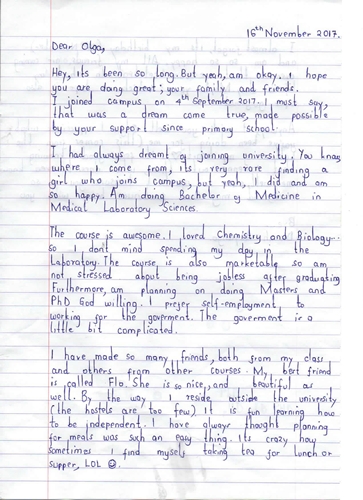 16th November 2017.
Dear Olga,
Hey, its been so long. But yeah, am okay. I hope
you are doing great; your family and friends.
I joined campus on 4th September 2017. I must say,
that was a dream come true, made possible
by your support since primary school.
I had always dreamt of joining university; You know
where I come from, its very rare finding a
girl who joins campus, but yeah, I did and am
so happy. Am doing Bachelor of Medicine in
Medical Laboratory Sciences.
The course is awesome. I loved Chemistry and Biology..
so I don't mind spending my day in the
Laboratory. The course is also marketable so am
not stressed about being jobless after graduating
Furthermore, am planning on doing Masters and
PhD God willing. I prefer self-employment to
working for the goverment. The goverment is a
little bit complicated.
I have made so many friends, both from my class
and others from other courses. My best friend
is called Flo. She is so nice, and beautiful as
well. By the way I reside outside the university
(the hostels are too few) It is fun learning how
to be independent. I have always thought planning
for meals was such an easy thing. Its crazy how
sometimes I find myself taking tea for lunch or
supper, LOL ☺.